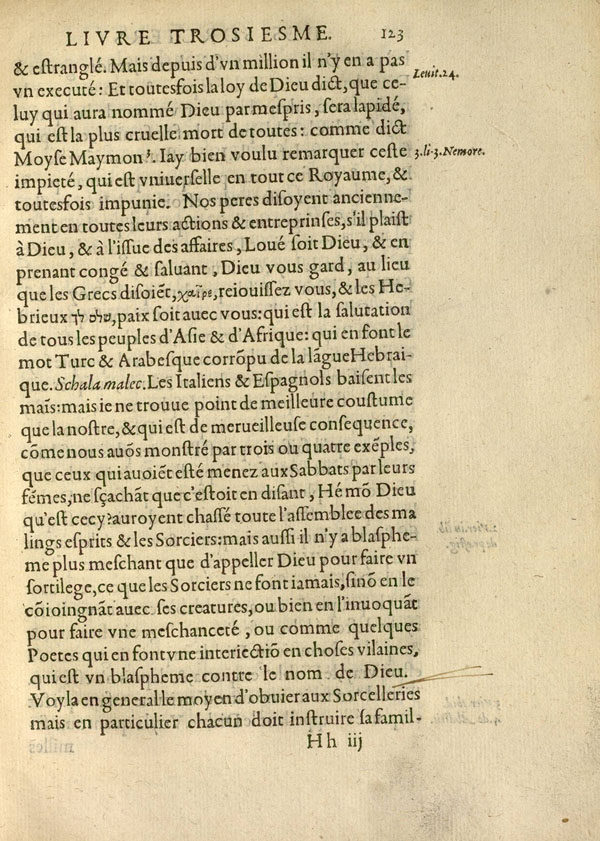 LIVRE TROSIESME. 123
& eſtranglé. Mais depuis d'vn million il n'y en a pas
vn executé: Et toutesfois la loy de Dieu dict, que ce-
Leuit. 24.
luy qui aura nommé Dieu par meſpris, ſera lapidé,
qui eſt la plus cruelle mort de toutes: comme dict
Moyſe Maymon ³. Iay bien voulu remarquer ceſte
3. li. 3. Nemore.
impieté, qui eſt vniuerſelle en tout ce Royaume, &
toutesfois impunie. Nos peres diſoyent ancienne-
ment en toutes leurs actions & entreprinſes, s'il plaiſt
à Dieu, & à l'iſſue des affaires, Loué ſoit Dieu, & en
prenant congé & ſaluant, Dieu vous gard, au lieu
que les Grecs diſoiẽt, χαῖρε, reiouiſſez vous, & les He-
brieux שלם לך, paix ſoit auec vous: qui eſt la ſalutation
de tous les peuples d'Aſie & d'Afrique: qui en font le
mot Turc & Arabeſque corrõpu de la lãgue Hebrai-
que. Schala malec. Les Italiens & Eſpagnols baiſent les
maĩs: mais ie ne trouue point de meilleure couſtume
que la noſtre, & qui eſt de merueilleuſe conſequence,
cõme nous auõs monſtré par trois ou quatre exẽples,
que ceux qui auoiẽt eſté menez aux Sabbats par leurs
fẽmes, ne ſçachãt que c'eſtoit en diſant, Hé mõ Dieu
qu'eſt cecy? auroyent chaſſé toute l'aſſemblee des ma
lings eſprits & les Sorciers: mais auſſi il n'y a blaſphe-
me plus meſchant que d'appeller Dieu pour faire vn
ſortilege, ce que les Sorciers ne font iamais, ſinõ en le
cõioingnãt auec ſes creatures, ou bien en l'inuoquãt
pour faire vne meſchanceté, ou comme quelques
Poetes qui en font vne interiectiõ en choſes vilaines,
qui eſt vn blaſpheme contre le nom de Dieu.
Voyla en general le moyen d'obuier aux Sorcelleries
mais en particulier chacun doit inſtruire ſa famil-
Hh iij